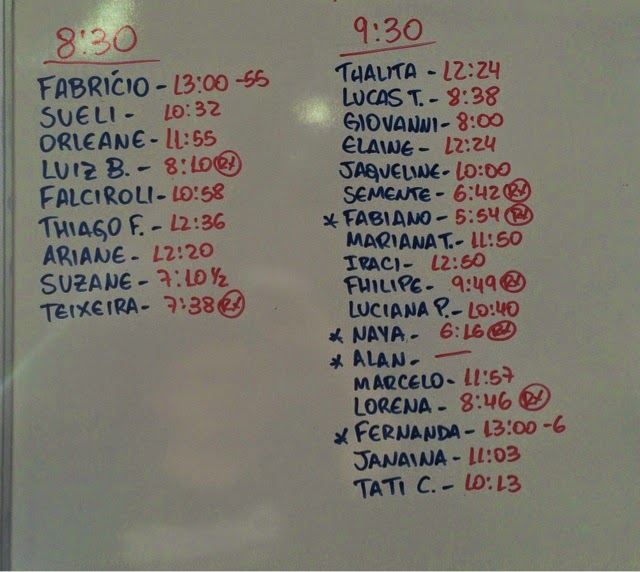 8:30
FABRÍCIO - 13:00 -55
SUELI - 10:32
ORLEANE - 11:55
LUIZ B. - 8:10 RX
FALCIROLI - 10:58
THIAGO F. - 12:36
ARIANE - 12:20
SUZANE - 7:10 1/2
TEIXEIRA - 7:38 RX
9:30
THALITA - 12:24
LUCAS T. - 8:38
GIOVANNI - 8:00
ELAINE - 12:24
JAQUELINE - 10:00
SEMENTE - 6:42 RX
* FABIANO - 5:54 RX
MARIANA T. - 11:50
IRACI - 12:50
FHILIPE - 9:49 RX
LUCIANA P. - 10:40
* NAYA - 6:16 RX
* ALAN - —
MARCELO - 11:57
LORENA - 8:46 RX
* FERNANDA - 13:00 -6
JANAINA - 11:03
TATI C. - 10:13